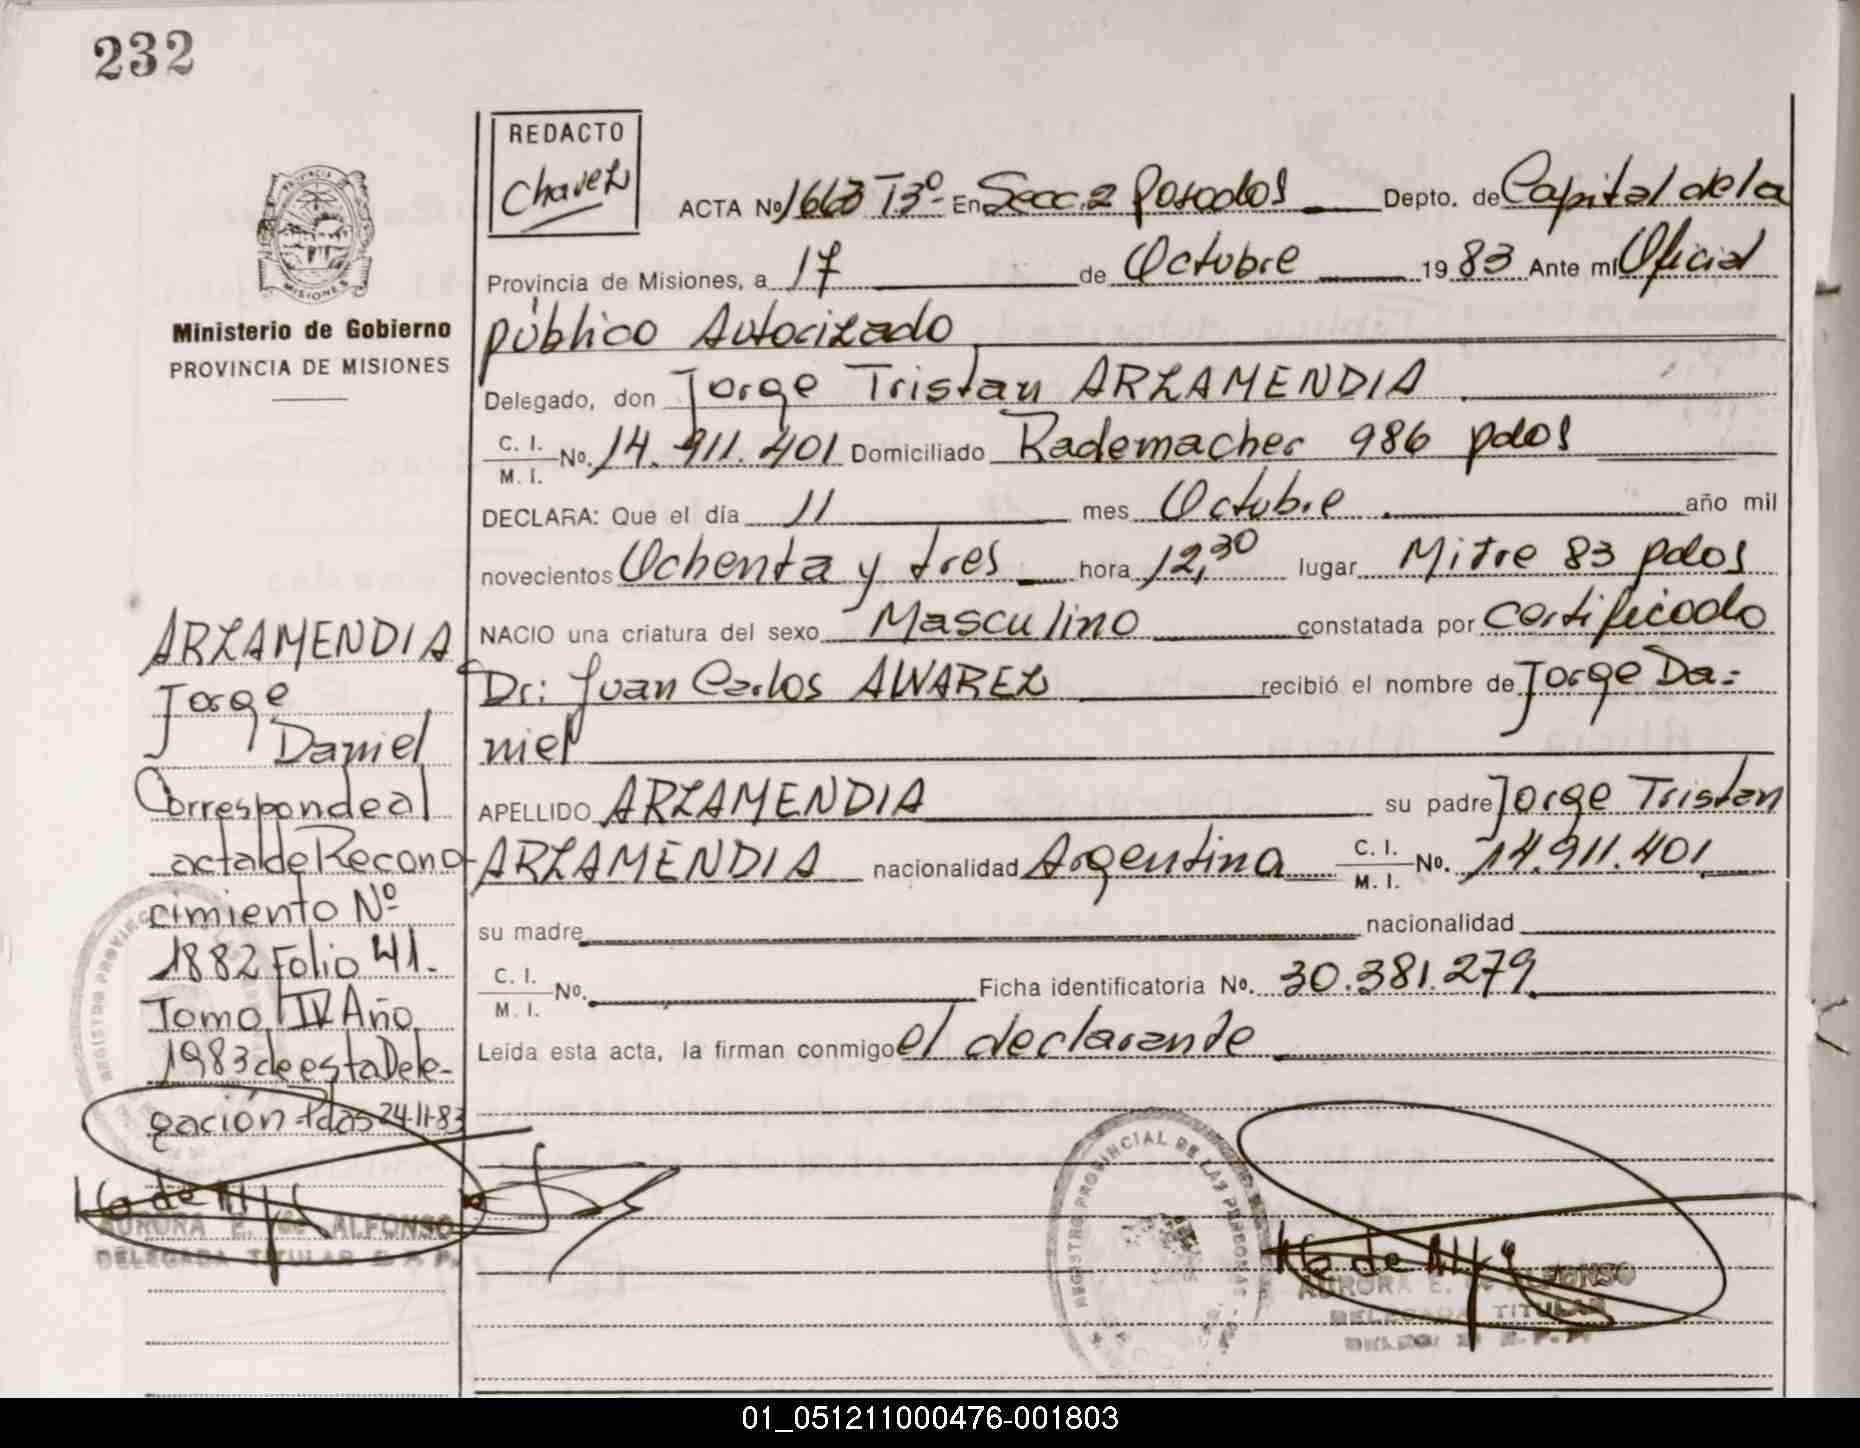 232
REDACTO
Chavez
ACTA No 1663 T3º- En Secc. 2 Posadas Depto. de Capital de la
Provincia de Misiones, a 17 de Octubre 1983 Ante mí Oficial
público Autorizado
Delegado, don Jorge Tristan ARZAMENDIA
C. I.
M. I. No. 14.911.401 Domiciliado Rademacher 986 pdas
DECLARA: Que el día 11 mes Octubre año mil
novecientos Ochenta y tres hora 12,30 lugar Mitre 83 pdas
NACIO una criatura del sexo Masculino constatada por Certificado
Dr: Juan Carlos ALVAREZ recibió el nombre de Jorge Da=
niel
APELLIDO ARZAMENDIA su padre Jorge Tristan
ARZAMENDIA nacionalidad Argentina C. I.
M. I. No. 14.911.401
su madre nacionalidad
C. I.
M. I. No. Ficha identificatoria No. 30.381.279
Leída esta acta, la firman conmigo el declarante
PROVINCIA DE
MISIONES
Ministerio de Gobierno
PROVINCIA DE MISIONES
ARZAMENDIA
Jorge
Daniel
Corresponde al
acta de Recono-
cimiento Nº
1882 Folio 41.
Tomo IV Año
1983 de esta Dele-
gación Pdas 24-11-83
AURORA E. ALFONSO
DELEGADA TITULAR
REGISTRO PROVINCIAL DE LAS PERSONAS
AURORA E. ALFONSO
DELEGADA TITULAR
01_051211000476-001803